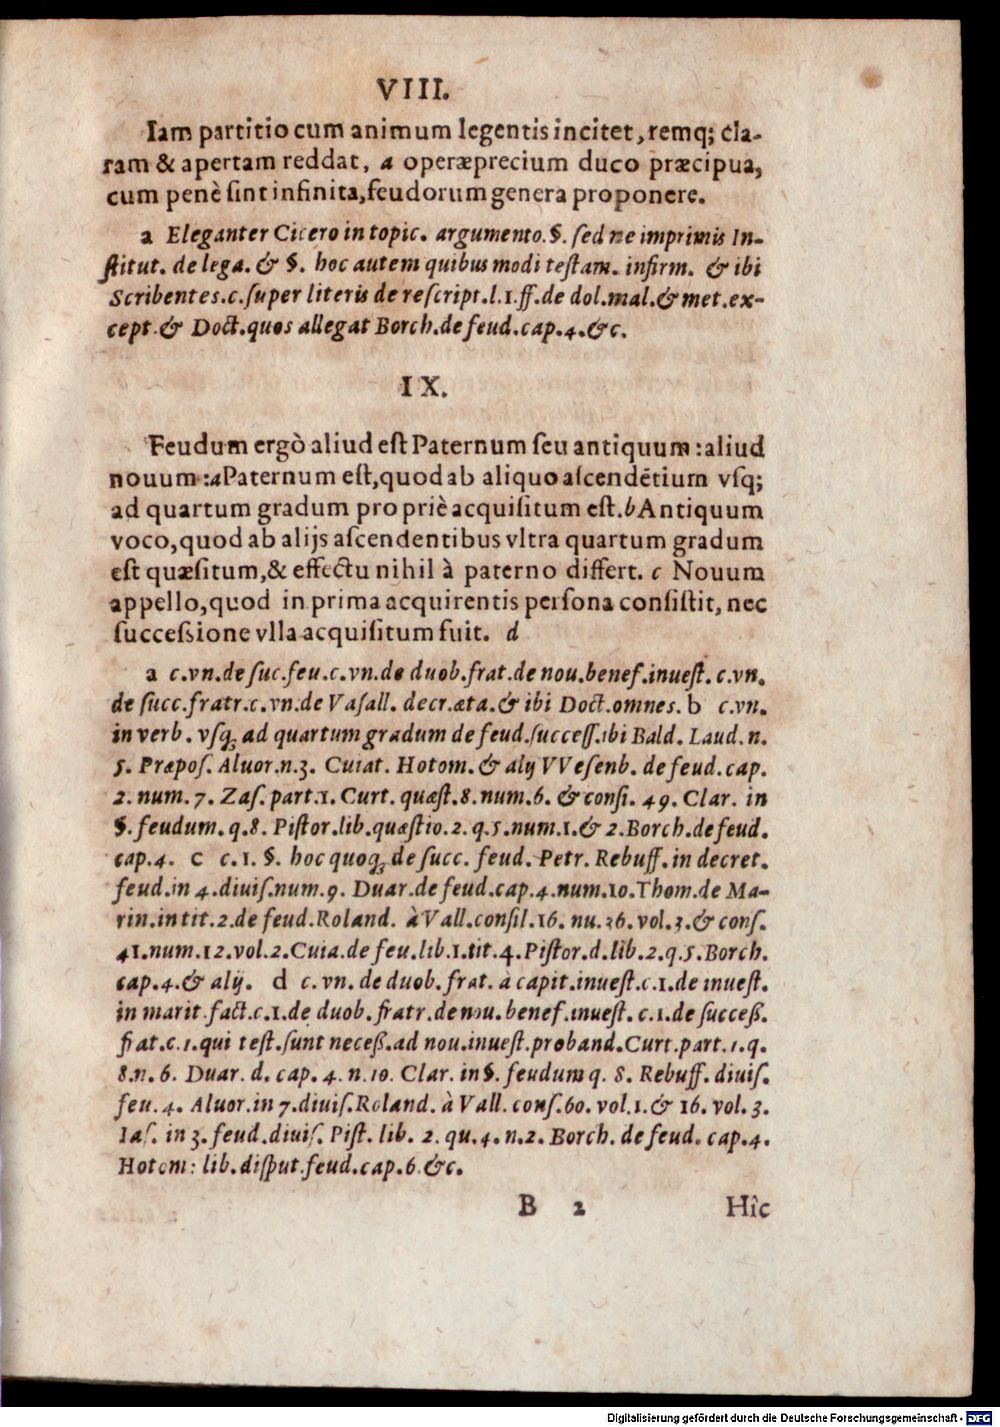 VIII.
Iam partitio cum animum legentis incitet, remq; cla-
ram & apertam reddat, a operæprecium duco præcipua,
cum penè sint infinita, feudorum genera proponere.
a Eleganter Cicero in topic. argumento. §. sed ne imprimis In-
stitut. de lega. & §. hoc autem quibus modi testam. infirm. & ibi
Scribentes. c. super literis de rescript. l. 1. ff. de dol. mal. & met. ex-
cept. & Doct. quos allegat Borch. de feud. cap. 4. &c.
IX.
Feudum ergò aliud est Paternum seu antiquum : aliud
nouum : a Paternum est, quod ab aliquo ascendētium vsq;
ad quartum gradum propriè acquisitum est. b Antiquum
voco, quod ab alijs ascendentibus vltra quartum gradum
est quæsitum, & effectu nihil à paterno differt. c Nouum
appello, quod in prima acquirentis persona consistit, nec
successione vlla acquisitum fuit. d
a c. vn. de suc. feu. c. vn. de duob. frat. de nou. benef. inuest. c. vn.
de succ. fratr. c. vn. de Vasall. decr. æta. & ibi Doct. omnes. b c. vn.
in verb. vsq; ad quartum gradum de feud. success. ibi Bald. Laud. n.
5. Præpos. Aluor. n. 3. Cuiat. Hotom. & alij VVesenb. de feud. cap.
2. num. 7. Zas. part. 1. Curt. quæst. 8. num. 6. & consi. 49. Clar. in
§. feudum. q. 8. Pistor. lib. quæstio. 2. q. 5. num. 1. & 2. Borch. de feud.
cap. 4. c c. 1. §. hoc quoq; de succ. feud. Petr. Rebuff. in decret.
feud. in 4. diuis. num. 9. Duar. de feud. cap. 4. num. 10. Thom. de Ma-
rin. in tit. 2. de feud. Roland. à Vall. consil. 16. nu. 36. vol. 3. & cons.
41. num. 12. vol. 2. Cuia. de feu. lib. 1. tit. 4. Pistor. d. lib. 2. q. 5. Borch.
cap. 4. & alij. d c. vn. de duob. frat. à capit. inuest. c. 1. de inuest.
in marit. fact. c. 1. de duob. fratr. de nou. benef. inuest. c. 1. de success.
frat. c. 1. qui test. sunt necess. ad nou. inuest. proband. Curt. part. 1. q.
8. n. 6. Duar. d. cap. 4. n. 10. Clar. in §. feudum q. 8. Rebuff. diuis.
feu. 4. Aluor. in 7. diuis. Roland. à Vall. cons. 60. vol. 1. & 16. vol. 3.
Ias. in 3. feud. diuis. Pist. lib. 2. qu. 4. n. 2. Borch. de feud. cap. 4.
Hotom: lib. disput. feud. cap. 6. &c.
B 2 Hîc
Digitalisierung gefördert durch die Deutsche Forschungsgemeinschaft - DFG